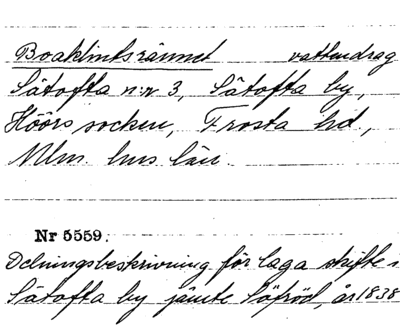 Boaklintsrännet vattendrag
Sätofta nr 3, Sätofta by,
Höörs socken, Frosta hd.,
Mlm. hus län.
Nr 5559.
Delningsbeskrivning för laga skifte
Sätofta by jämte Löfröd, år 1838